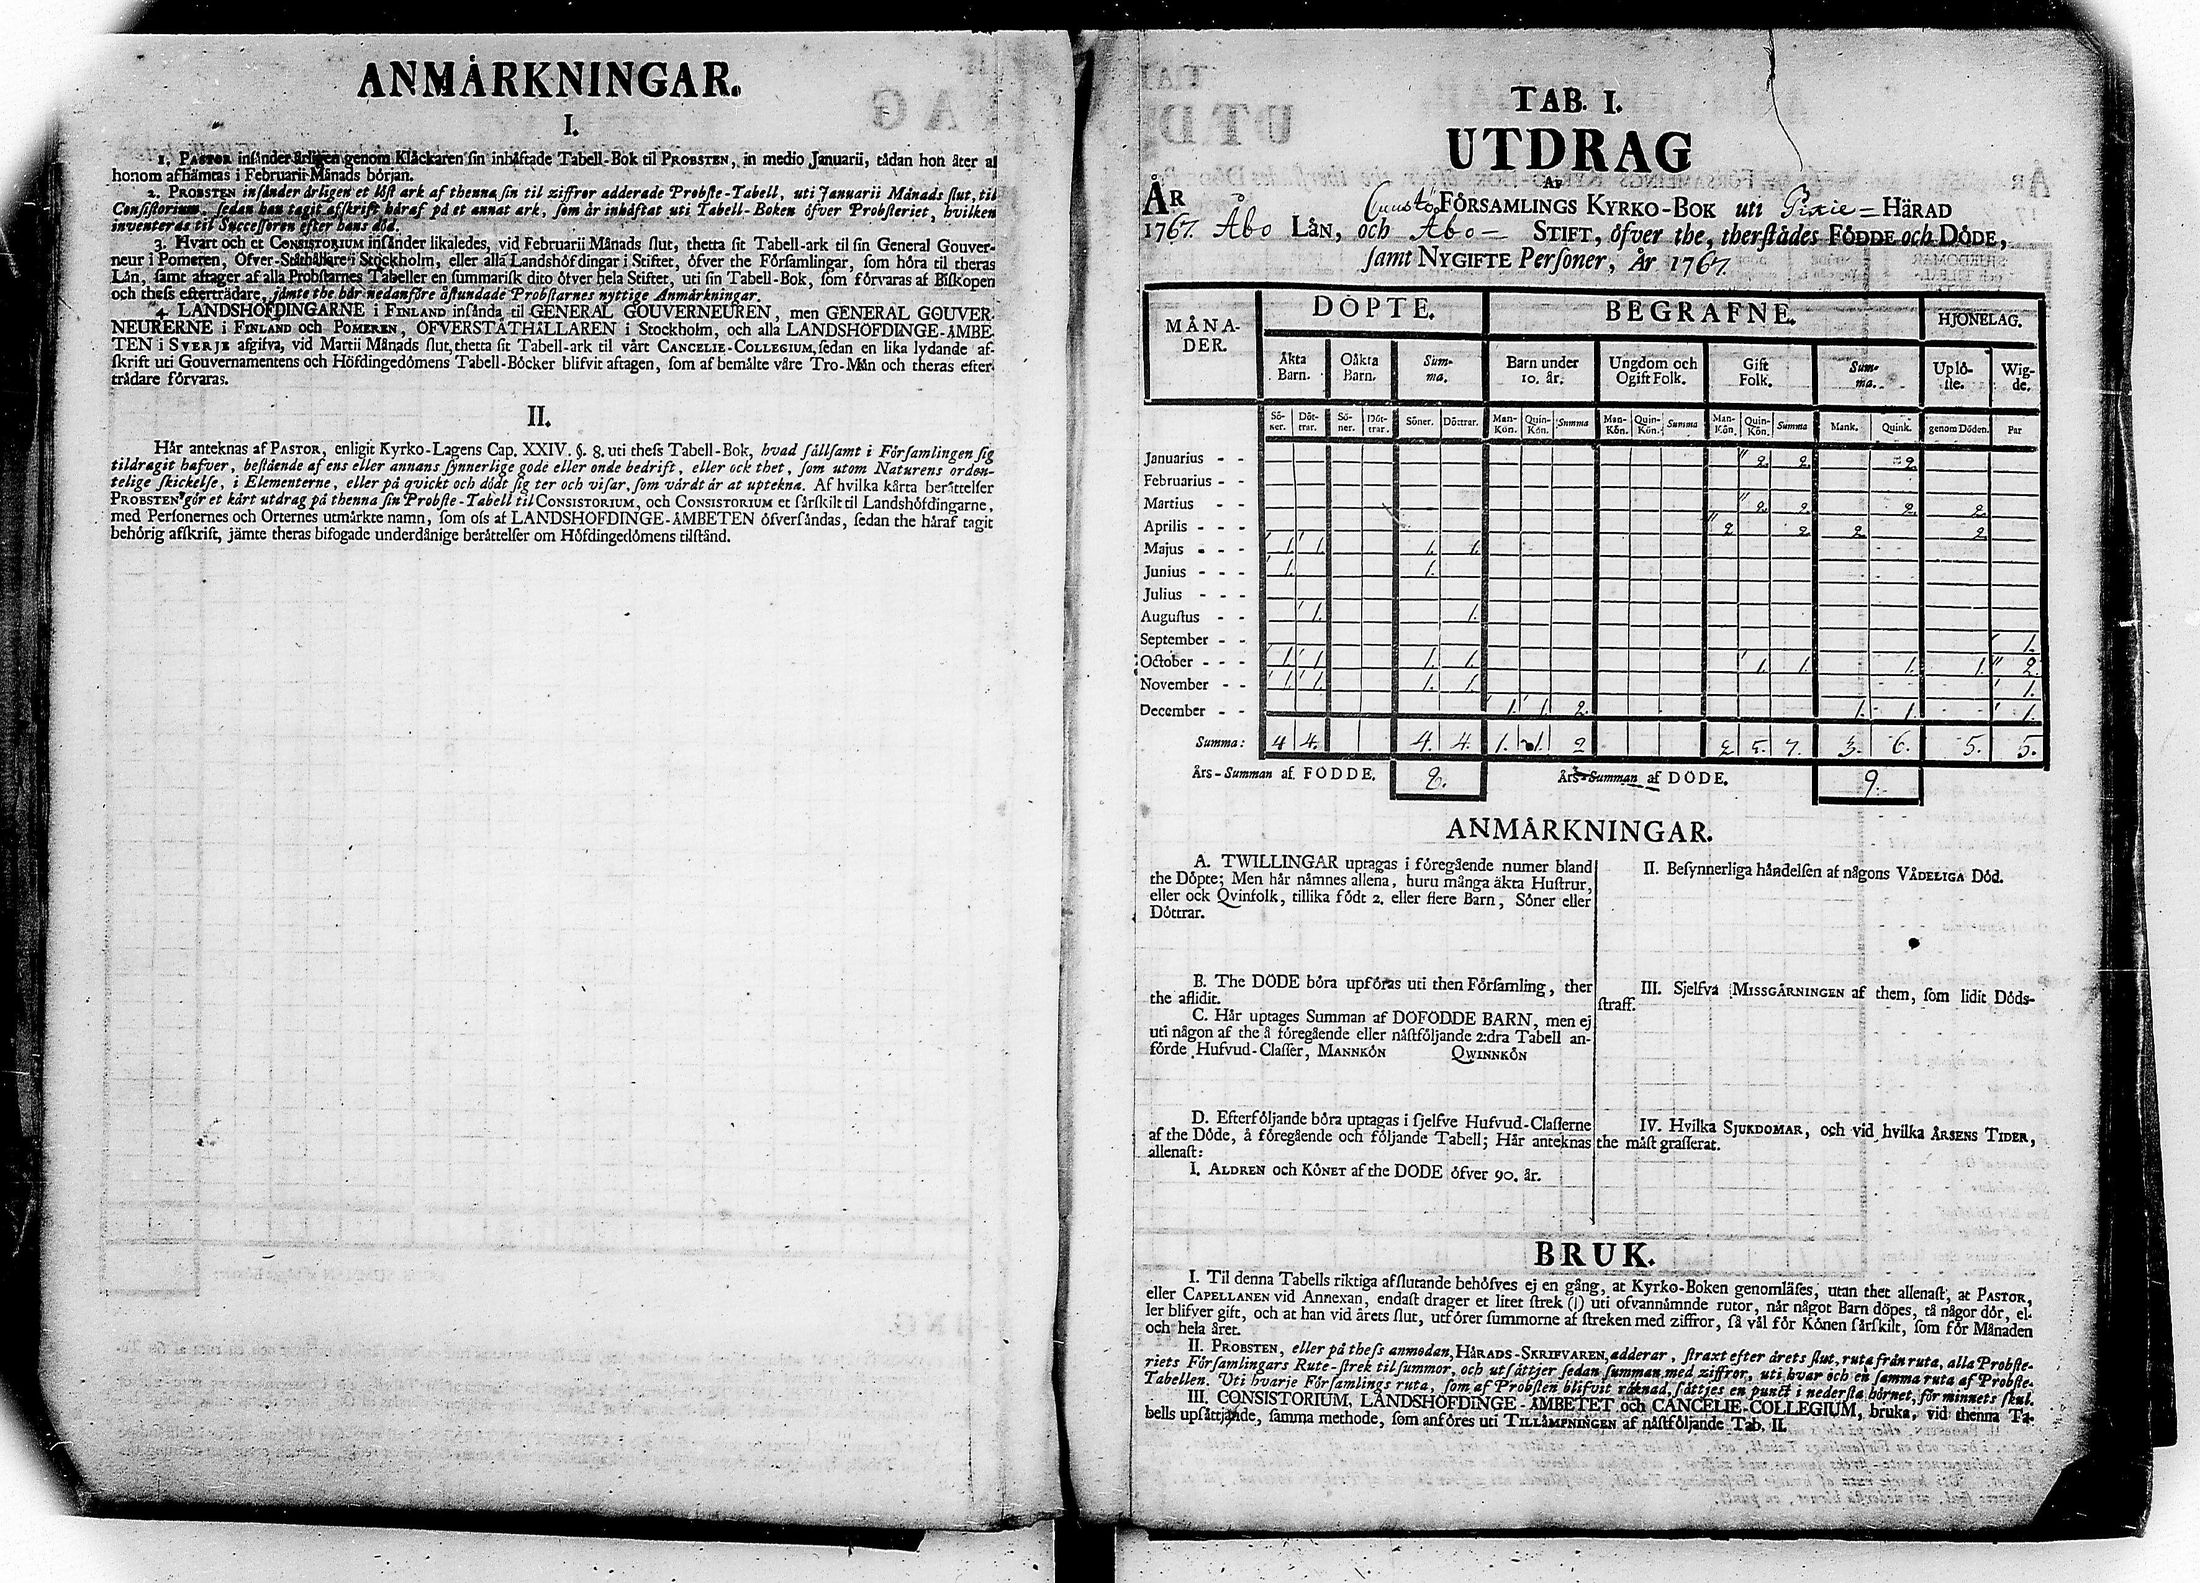 ANMÅRKNINGAR.
I.
1. PASTOR insånder årligen genom Klåckaren sin inhåftade Tabell-Bok til PROBSTEN, in medio Januarii, tådan hon åter af
honom afhåmtas i Februarii Månads början.
2. PROBSTEN insånder årligen et låst ark af thenna sin til ziffror adderade Probste-Tabell, uti Januarii Månads slut, til
Consistorium, sedan han tagit afskrift håraf på et annat ark, som år inhåftat uti Tabell-Boken öfver Probsteriet, hvilken
inventeras til Successoren efter hans död.
3. Hvart och et CONSISTORIUM insånder likaledes, vid Februarii Månads slut, thetta sit Tabell-ark til sin General Gouver-
neur i Pomeren, Öfver-Ståthållare i Stockholm, eller alla Landshöfdingar i Stiftet, öfver the Församlingar, som höra til theras
Lån, samt aftager af alla Probstarnes Tabeller en summarisk dito öfver hela Stiftet, uti sin Tabell-Bok, som förvaras af Biskopen
och thess efterträdare, jämte the hår nedanföre åstundade Probstarnes nyttige Anmårkningar.
4. LANDSHÖFDINGARNE i FINLAND insånda til GENERAL GOUVERNEUREN, men GENERAL GOUVER-
NEURERNE i FINLAND och POMEREN, ÖFVERSTÅTHÅLLAREN i Stockholm, och alla LANDSHÖFDINGE-ÅMBE-
TEN i SVERJE afgifva, vid Martii Månads slut, thetta sit Tabell-ark til vårt CANCELIE-COLLEGIUM, sedan en lika lydande af-
skrift uti Gouvernamentens och Höfdingedömens Tabell-Böcker blifvit aftagen, som af bemålte våre Tro-Mån och theras efter-
trådare förvaras.
II.
Hår anteknas af PASTOR, enligit Kyrko-Lagens Cap. XXIV. §. 8. uti thess Tabell-Bok, hvad sållsamt i Församlingen sig
tildragit hafver, bestående af ens eller annans synnerlige gode eller onde bedrift, eller ock thet, som utom Naturens orden-
telige skickelse, i Elementerne, eller på qvickt och dödt sig ter och visar, som vårdt år at uptekna. Af hvilka kårta beråttelser
PROBSTEN gör et kårt utdrag på thenna sin Probste-Tabell til CONSISTORIUM, och CONSISTORIUM et sårskilt til Landshöfdingarne,
med Personernes och Orternes utmårkte namn, som oss af LANDSHÖFDINGE-ÅMBETEN öfversåndas, sedan the håraf tagit
behörig afskrift, jämte theras bifogade underdånige beråttelser om Höfdingedömens tilstånd.
TAB. I.
UTDRAG
AF
ÅR FÖRSAMLINGS KYRKO-BOK uti HÄRAD
1767. Åbo LÅN, och Åbo STIFT, öfver the, therstådes FÖDDE och DÖDE,
samt NYGIFTE Personer, År 1767.
MÅNA-DER. DÖPTE. BEGRAFNE. HJONELAG.
Åkta Barn. Oåkta Barn. Summa. Barn under 10. år. Ungdom och Ogift Folk. Gift Folk. Summa. Uplö-ste. Wig-de.
Sö-ner. Döt-trar. Sö-ner. Döt-trar. Söner. Döttrar. Man-Kön. Quin-Kön. Summa Man-Kön. Quin-Kön. Summa Man-Kön. Quin-Kön. Summa Mank. Quink. genom Döden. Par
Januarius - - " 2. 2. 2.
Februarius - -
Martius - - " 2. 2. 2. 2.
Aprilis - - - " 2 2 2 2.
Majus - - - ' 1. ' 1. 1. 1.
Junius - - - ' 1. 1.
Julius - - -
Augustus - - ' 1. 1.
September - - ' 1.
October - - - ' 1. ' 1. 1. 1. ' 1. 1. 1. 1. " 2.
November - - ' 1. ' 1. 1. 1. ' 1.
December - - ' 1. ' 1. 2. 1. 1. ' 1.
Summa: 4 4. 4. 4. 1. 1. 2 2 5. 7. 3. 6. 5. 5.
Års-Summan af FÖDDE. 8. Års-Summan af DÖDE. 9.
ANMÅRKNINGAR.
A. TWILLINGAR uptagas i föregående numer bland
the Döpte; Men hår nåmnes allena, huru många åkta Hustrur,
eller ock Qvinfolk, tillika födt 2. eller flere Barn, Söner eller
Döttrar.
B. The DÖDE böra upföras uti then Församling, ther
the aflidit.
C. Hår uptages Summan af DÖFÖDDE BARN, men ej
uti någon af the å föregående eller nåstföljande 2:dra Tabell an-
förde Hufvud-Classer, MANNKÖN QWINNKÖN
D. Efterföljande böra uptagas i sjelfve Hufvud-Classerne
af the Döde, å föregående och följande Tabell; Hår anteknas
allenast:
I. ÅLDREN och KÖNET af the DÖDE öfver 90. år.
II. Besynnerliga håndelsen af någons VÅDELIGA Död.
III. Sjelfva MISSGÅRNINGEN af them, som lidit Döds-
straff.
IV. Hvilka SJUKDOMAR, och vid hvilka ÅRSENS TIDER,
the måst grasserat.
BRUK.
I. Til denna Tabells riktiga afslutande behöfves ej en gång, at Kyrko-Boken genomläses, utan thet allenast, at PASTOR,
eller CAPELLANEN vid Annexan, endast drager et litet strek (|) uti ofvannåmnde rutor, når något Barn döpes, tå någor dör, el-
ler blifver gift, och at han vid årets slut, utförer summorne af streken med ziffror, så vål för Könen sårskilt, som för Månaden
och hela året.
II. PROBSTEN, eller på thess anmodan, HÅRADS-SKRIFVAREN, adderar, straxt efter årets slut, ruta från ruta, alla Probste-
riets Församlingars Rute-strek til summor, och utsåttjer sedan summan med ziffror, uti hvar och en samma ruta af Probste-
Tabellen. Uti hvarje Församlings ruta, som af Probsten blifvit råknad, såttjes en punct i nedersta hörnet, för minnets skul.
III. CONSISTORIUM, LANDSHÖFDINGE-ÅMBETET och CANCELIE-COLLEGIUM, bruka, vid thenna Ta-
bells upsåttjande, samma methode, som anföres uti TILLÅMPNINGEN af nåstföljande Tab. II.